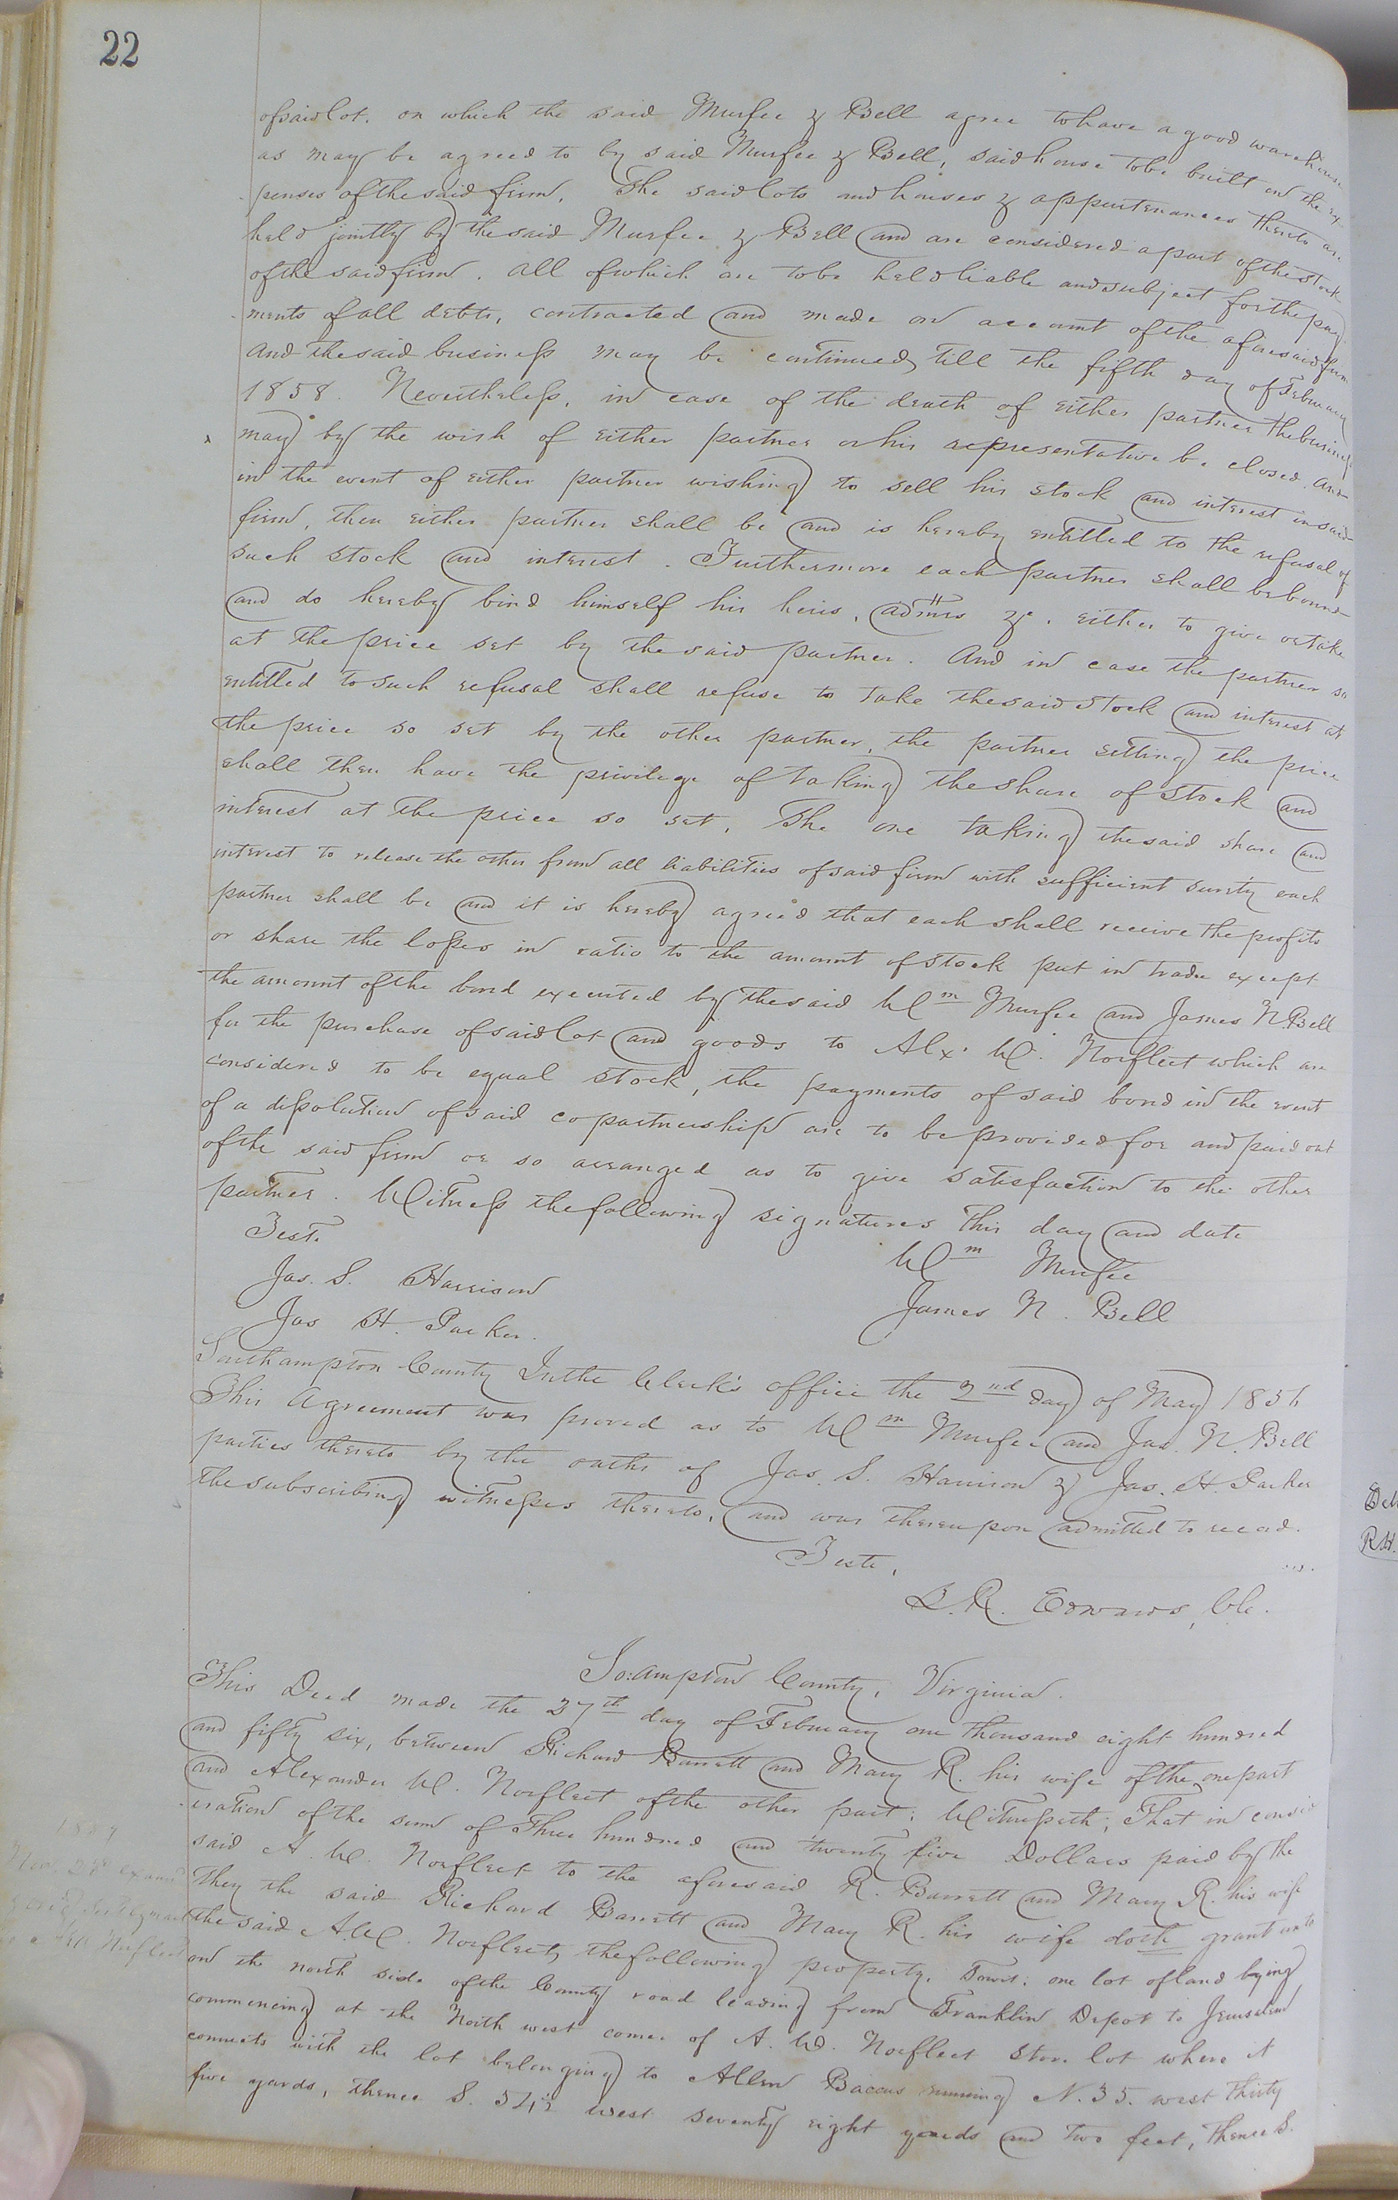 22
of said lot. on which the said Murfee & Bell agree to have a good warehouse
as may be agreed to by said Murfee & Bell, said house to be built on the ex-
penses of the said firm. The said lots and houses & appurtenances thereto are
held jointly by the said Murfee & Bell and are considered a part of the stock
of the said firm. all of which are to be held liable and subject for the pay
ments of all debts, contracted and made on account of the aforesaid firm
And the said business may be continued till the fifth day of February
1858. Nevertheless, in case of the death of either partner the business
may by the wish of either partner or his representative be closed. and
in the event of either partner wishing to sell his stock and interest in said
firm, then either partner shall be and is hereby entitled to the refusal of
such stock and interest. Furthermore each partner shall be bound
and do hereby bind himself his heirs, admrs &c. either to give or take
at the price set by the said partner. And in case the partner so
entitled to such refusal shall refuse to take the said stock and interest at
the price so set by the other partner, the partner setting the price
shall then have the privilege of taking the share of stock and
interest at the price so set. The one taking the said share and
interest to release the other from all liabilities of said firm with sufficient surety each
partner shall be and it is hereby agreed that each shall receive the profits
or share the losses in ratio to the amount of stock put in trade except
the amount of the bond executed by the said Wm Murfee and James N. Bell
for the purchase of said lot and goods to Alx. W. Norfleet which are
considered to be equal stock, the payments of said bond in the event
of a dissolution of said copartnership are to be provided for and paid out
of the said firm or so arranged as to give satisfaction to the other
partner. Witness the following signatures this day and date
Test.
Wm Murfee
Jas. S. Harrison
James N. Bell
Jas H. Parker.
Southampton County In the Clerk's office the 2nd day of May 1856
This Agreement was proved as to Wm Murfee and Jas. N. Bell
parties thereto by the oaths of Jas. S. Harrison & Jas. H. Parker
the subscribing witnesses thereto, and was thereupon admitted to record.
Teste,
L. R. Edwards, Clk.
So:ampton County, Virginia.
This Deed made the 27th day of February one thousand eight hundred
and fifty six, between Richard Barrett and Mary R. his wife of the one part
and Alexander W. Norfleet of the other part; Witnesseth; That in consid
eration of the sum of Three hundred and twenty five Dollars paid by the
said A. W. Norfleet to the aforesaid R. Barrett and Mary R. his wife
They the said Richard Barrett and Mary R. his wife doth grant unto
the said A.W. Norfleet, the following property. Towit: one lot of land lying
on the north side of the County road leading from Franklin Depot to Jerusalem
commencing at the North west corner of A. W. Norfleet store lot where it
connects with the lot belonging to Allen Baccus running N. 35. west thirty
five yards, thence S. 54½ west seventy eight yards and two feet, thence S.
1857